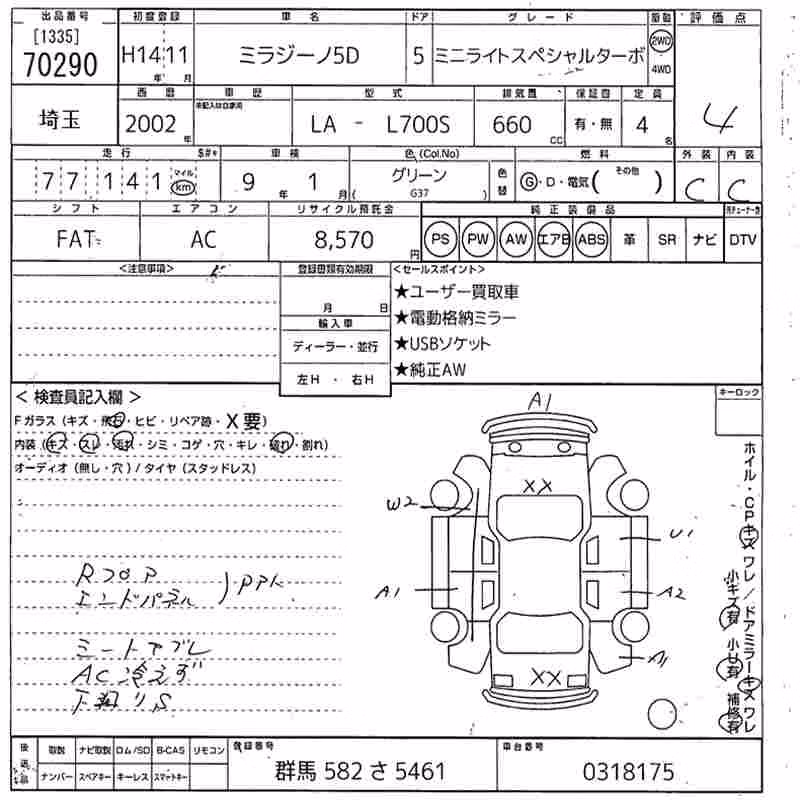 出品番号 初度登録 車名 ドア グレード 駆動 評価点
[1335]
70290 H14 11 ミラジーノ5D 5 ミニライトスペシャルターボ 2WD
年 月 4WD
西暦 車歴 型式 排気量 保証書 定員
未記入は自家用
埼玉 2002年 LA - L700S 660 CC 有・無 4名 4
走行 $#* 車検 色(Col.No) 燃料 外装 内装
77141 マイル km 9年 1月 グリーン 色替 G・D・電気( その他 ) C C
( G37 )
シフト エアコン リサイクル預託金 純正装備品
FAT AC 8,570円 PS PW AW エアB ABS 革 SR ナビ DTV
<注意事項> 登録書類有効期限 <セールスポイント>
月 日 ★ユーザー買取車
輸入車 ★電動格納ミラー
ディーラー・並行 ★USBソケット
左H ・ 右H ★純正AW
< 検査員記入欄 > キーロック
Fガラス(キズ・飛石・ヒビ・リペア跡・X要)
内装(キズ・スレ・汚れ・シミ・コゲ・穴・キレ・破れ・割れ)
オーディオ(無し・穴)/タイヤ(スタッドレス)
A1
XX
W2
U1
A1
A2
XX
A1
Rフロア
エンドパネル )PPK
シートヤブレ
AC冷えず
下廻りS
ホイル・CPキズ ワレ/ドアミラーキズ ワレ
小キズ有 小U有 補修有
後送品 取説 ナビ取説 ロム/SD B-CAS リモコン 登録番号 車台番号
ナンバー スペアキー キーレス スマートキー 群馬 582 さ 5461 0318175